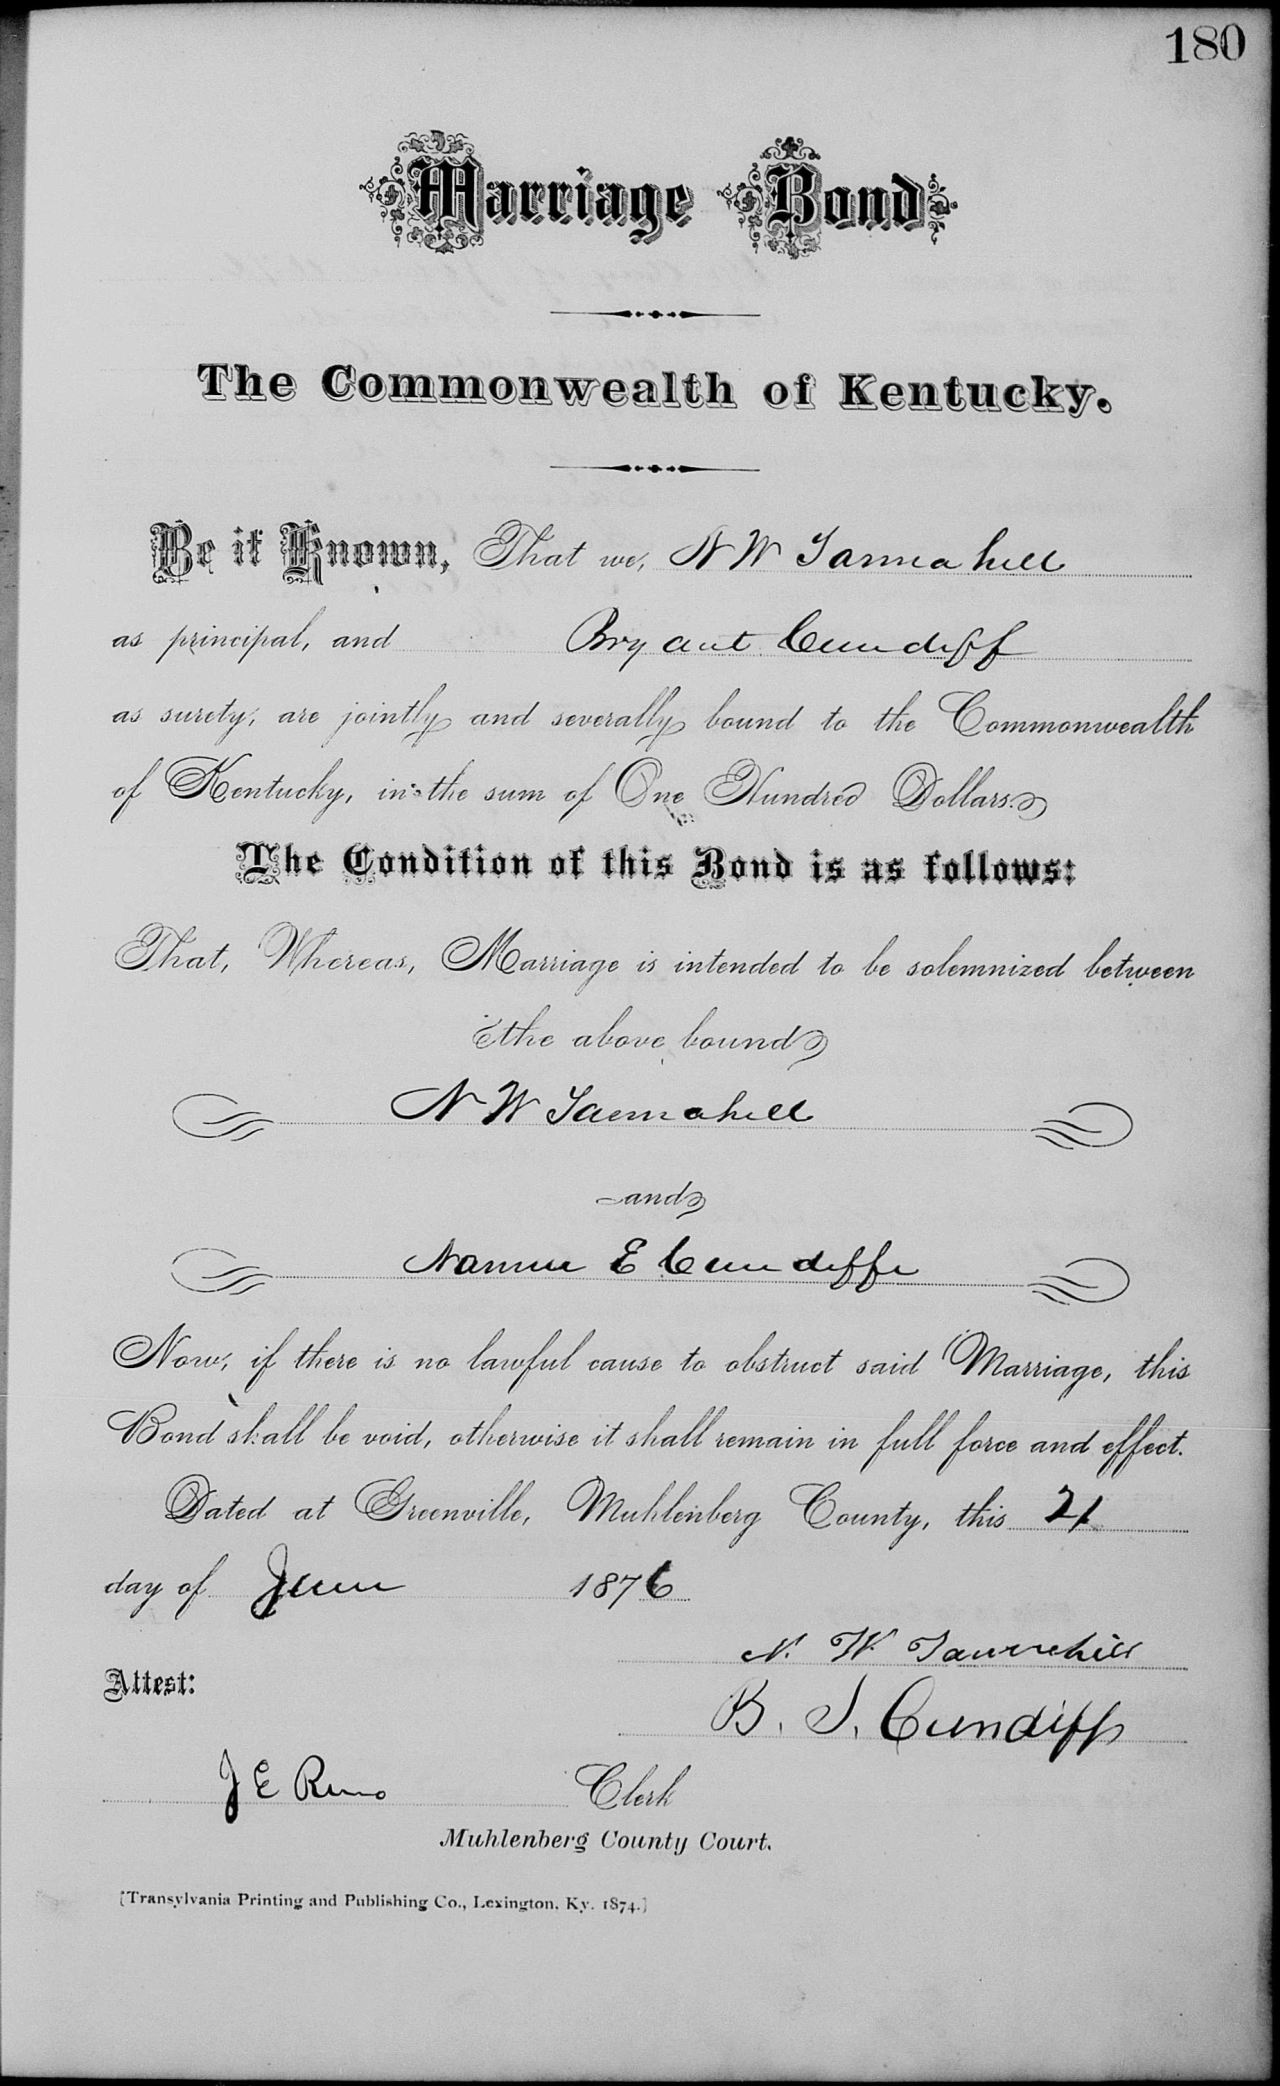 180
Marriage Bond.
The Commonwealth of Kentucky.
Be it Known, That we, N W Tannahill
as principal, and Bryant Cundiff
as surety, are jointly and severally bound to the Commonwealth
of Kentucky, in the sum of One Hundred Dollars.
The Condition of this Bond is as follows:
That, Whereas, Marriage is intended to be solemnized between
the above bound
N W Tannahill
and
Nannie E Cundiffe
Now, if there is no lawful cause to obstruct said Marriage, this
Bond shall be void, otherwise it shall remain in full force and effect.
Dated at Greenville, Muhlenberg County, this 21
day of June 1876
N. W. Tannehill
Attest:
B. J. Cundiff
J E Reno Clerk
Muhlenberg County Court.
[Transylvania Printing and Publishing Co., Lexington, Ky. 1874.]